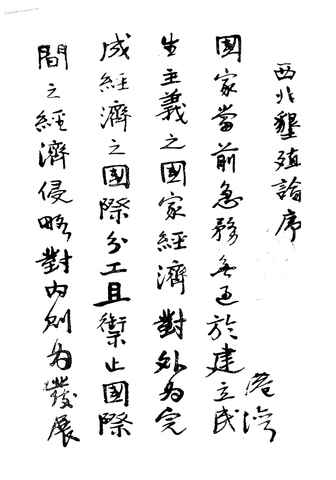 西北墾殖論序
國家當前急務無逼於建立民
生主義之國家經濟對外為完
成經濟之國際分工且禦止國際
間之經濟侵略對内則為發展